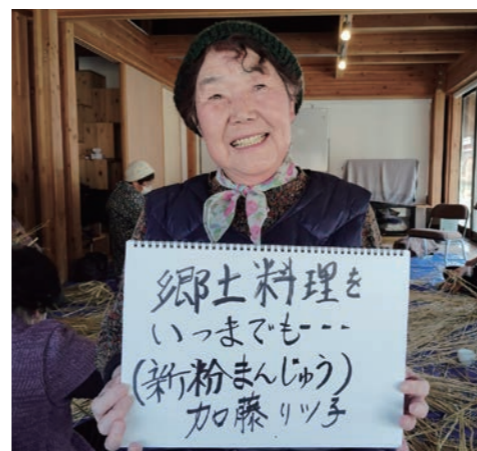 郷土料理を
いつまでも---
(新粉まんじゅう)
加藤リツ子